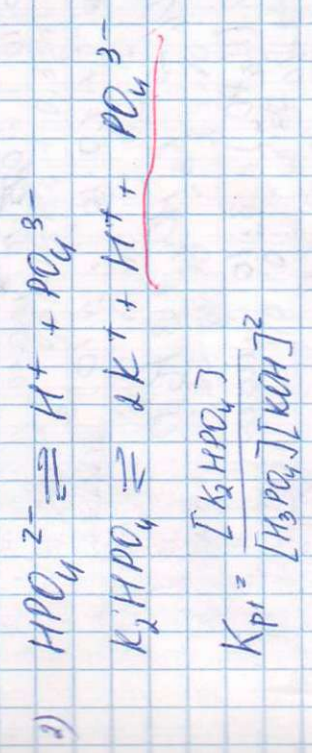 2) HPO₄²⁻ ⇌ H⁺ + PO₄³⁻
K₂HPO₄ ⇌ 2K⁺ + H⁺ + PO₄³⁻
Kр1 = [K₂HPO₄] / [H₃PO₄][KOH]²